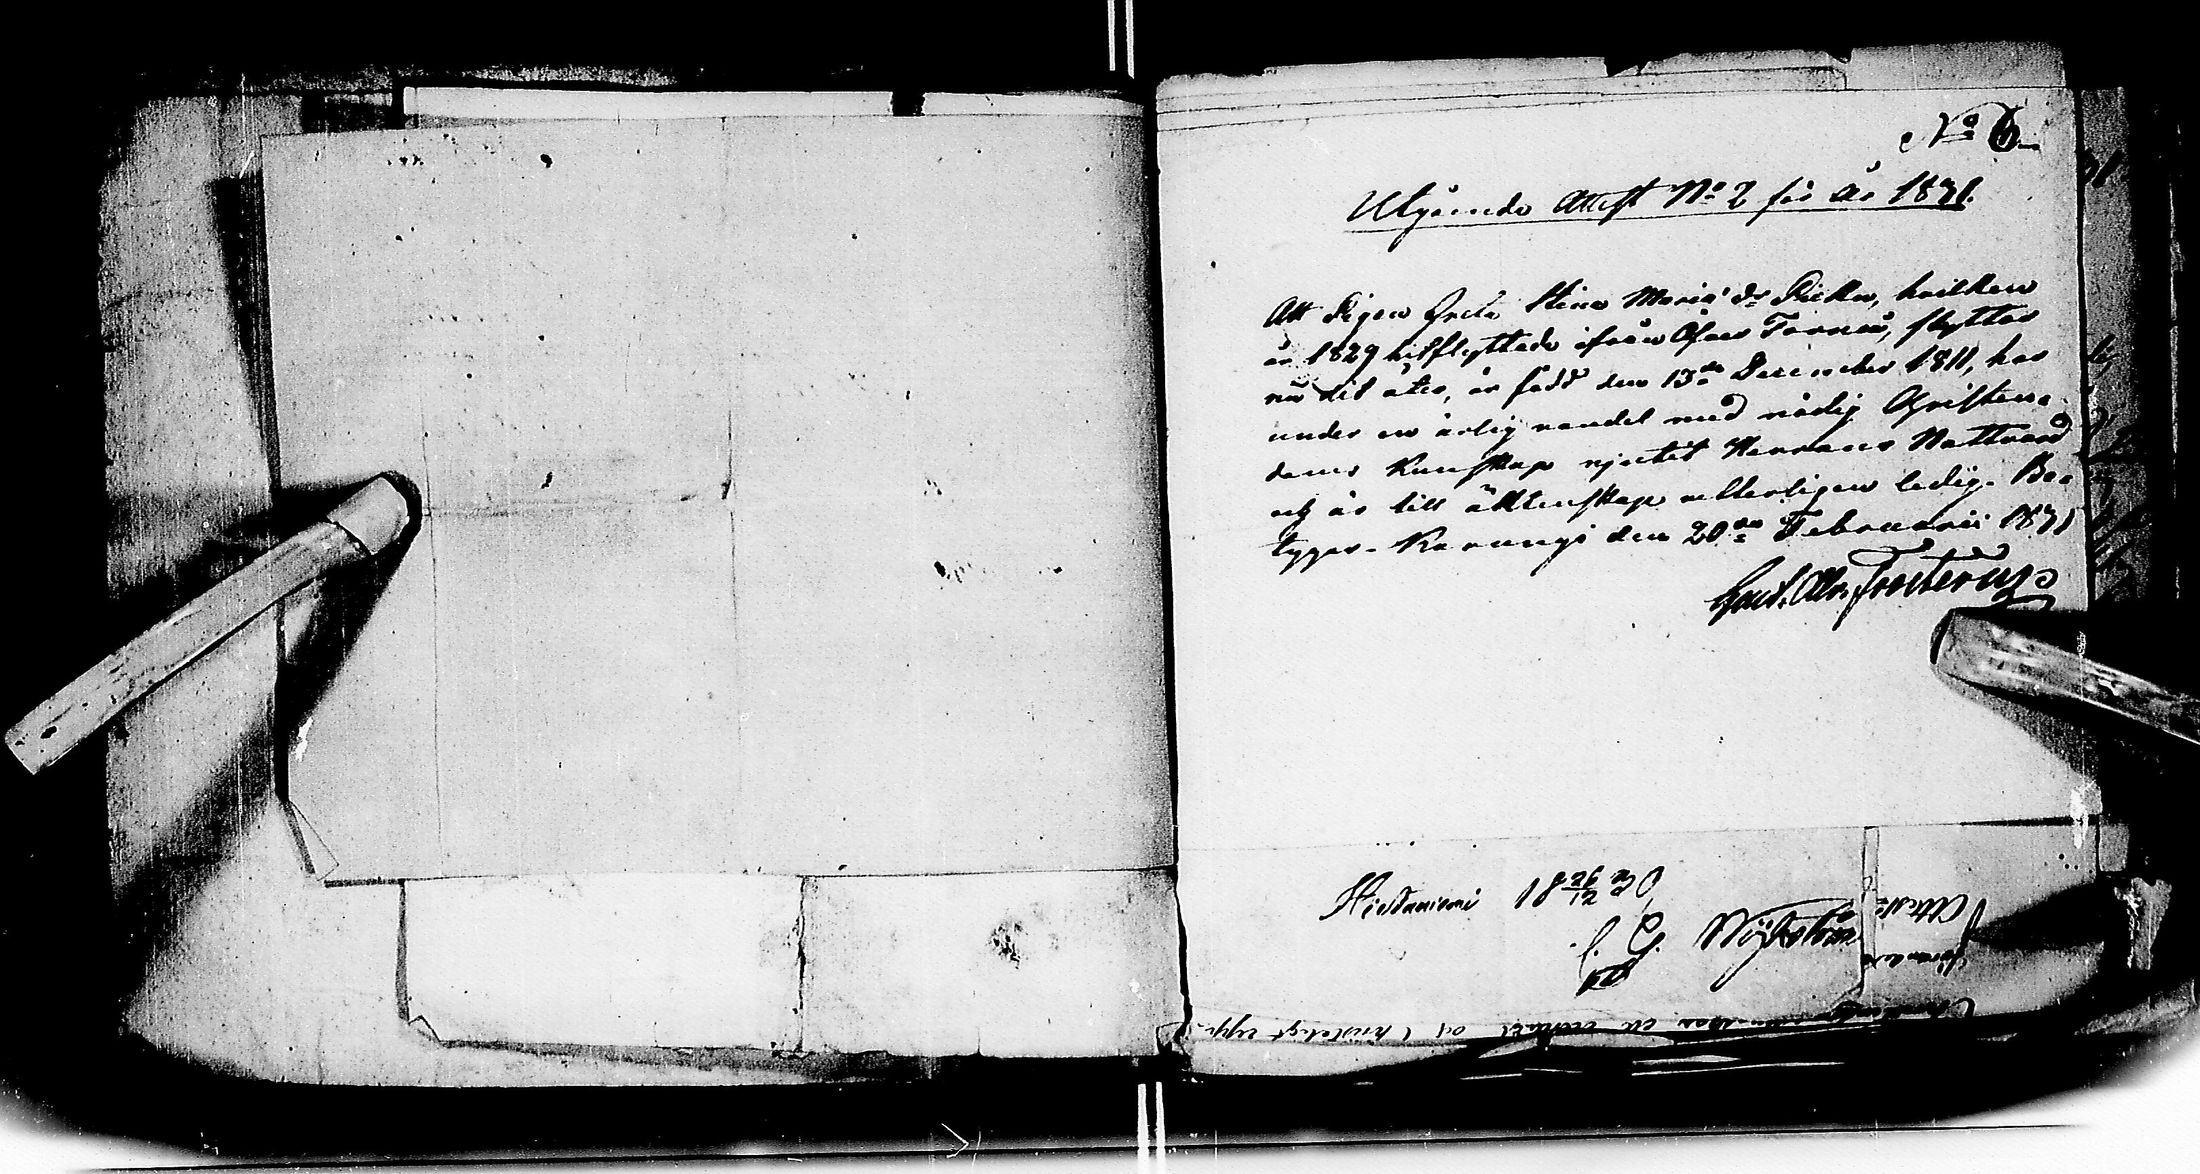 No 6.
Utgående Attest No 2 för År 1831.
Att Pigan Greta Stina Maria dr Ricku, hvilken
år 1829 hitflyttade ifrån Öfver Torneå, flyttar
nu dit åter, är född den 13de December 1811, har
under en ärlig vandel med nödig Christen-
doms kunskap njutit Herrans Nattvard
och är till äktenskap veterligen ledig. Be-
tygar. Karungi den 20de Februarii 1831
Gust. Ad. Frosterus
Hietaniemi 18 26/12 30,
C. G. Wikström
Attest